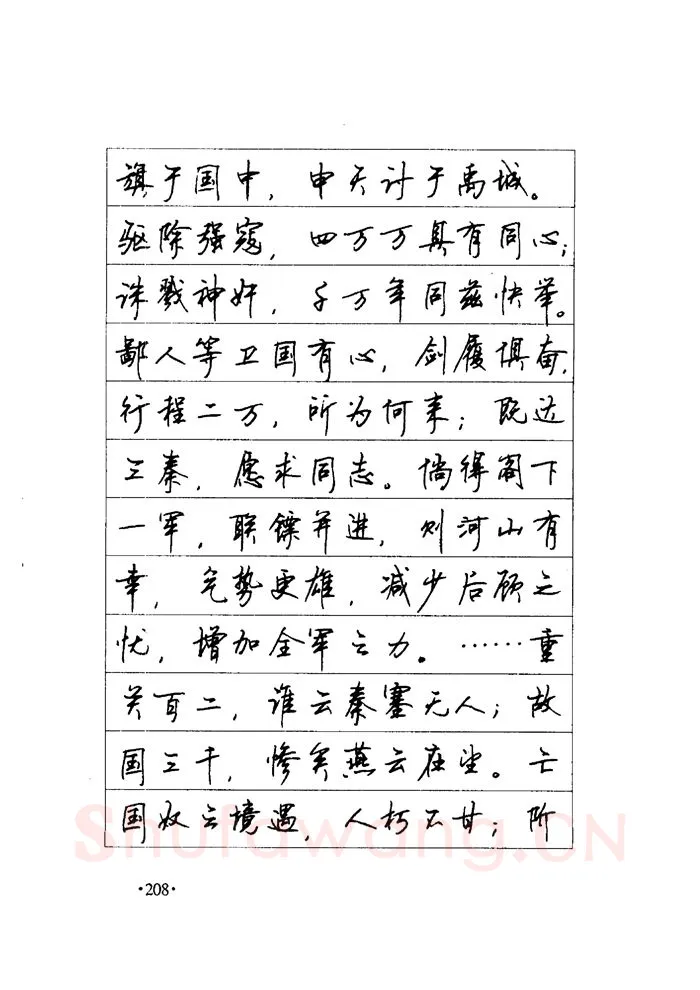 旗于国中，申天讨于禹城。
驱除强寇，四万万具有同心；
诛戮神奸，千万年同兹快举。
鄙人等卫国有心，剑履俱奋，
行程二万，所为何来；既达
三秦，愿求同志。倘得阁下
一军，联镖并进，则河山有
幸，气势更雄，减少后顾之
忧，增加全军之力。……重
关百二，谁云秦塞无人；故
国三千，惨矣燕云在望。亡
国奴之境遇，人朽不甘；阶
Shufawang.CN
·208·